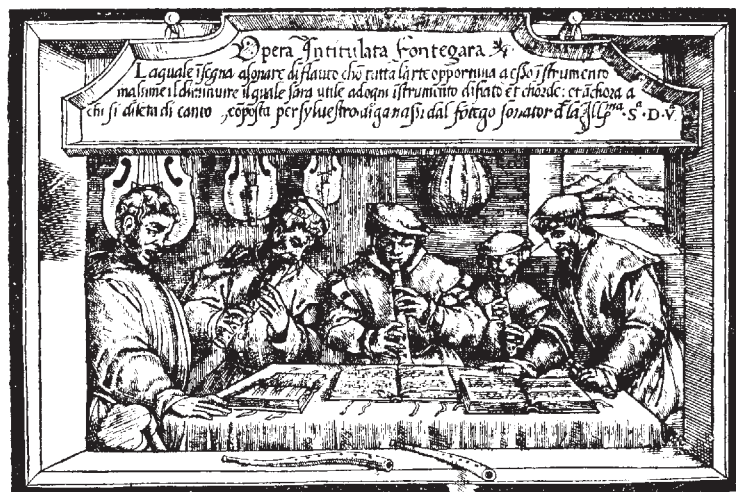 Opera Intitulata Fontegara
Laquale īsegna a sonare di flauto chō tutta l'arte opportuna a esso īstrumento
massime il diminuire il quale sara utile ad ogni īstrumento di fiato et chorde: et āchora a
chi si dileta di canto, cōposta per sylvestro di ganassi dal fōtego sonator d̄ la Ill^ma. S^a. D. V^a.